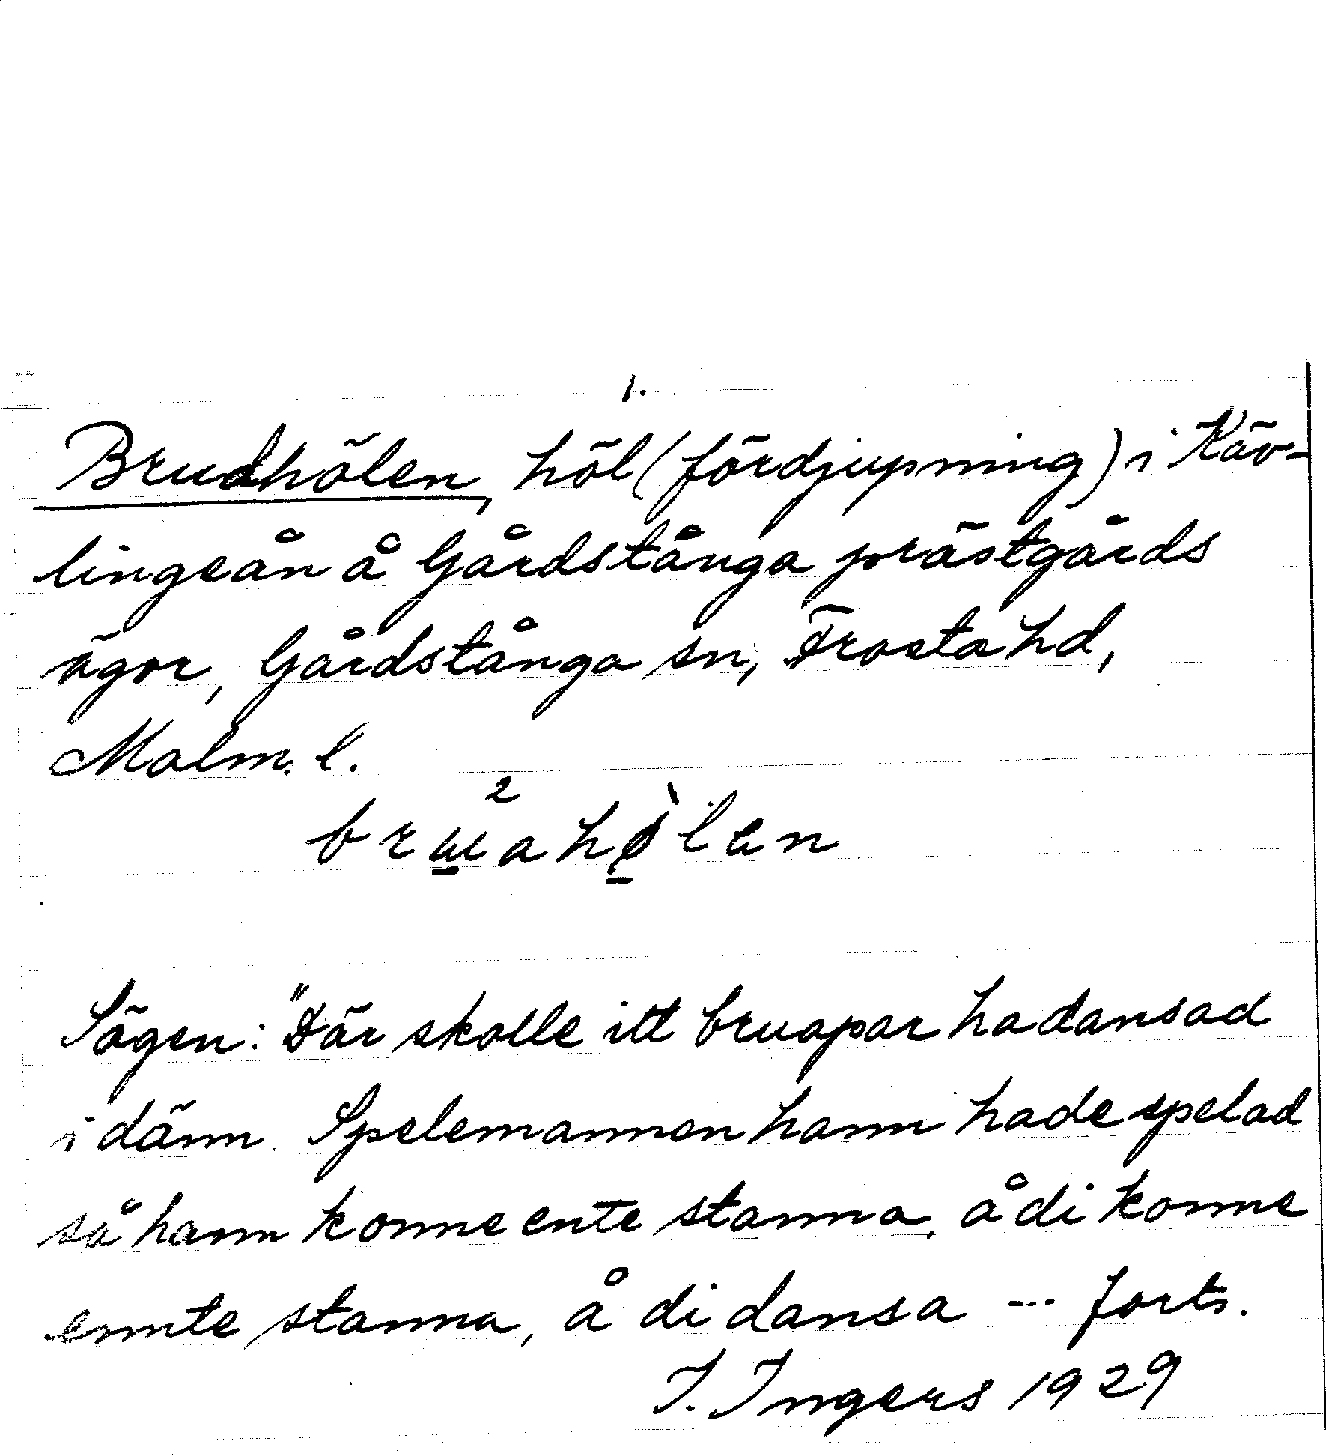 1.
Brudhölen, höl (fördjupning) i Käv-
lingeån å Gårdstånga prästgårds
ägor, Gårdstånga sn, Frosta hd,
Malm. l.
2
bruahølen
Sägen: "Där skolle itt bruapar ha dansad
i dänn. Spelemannen hann hade spelad
så hann konne ente stanna, å di konne
ennte stanna, å di dansa --- forts.
I. Ingers 1929